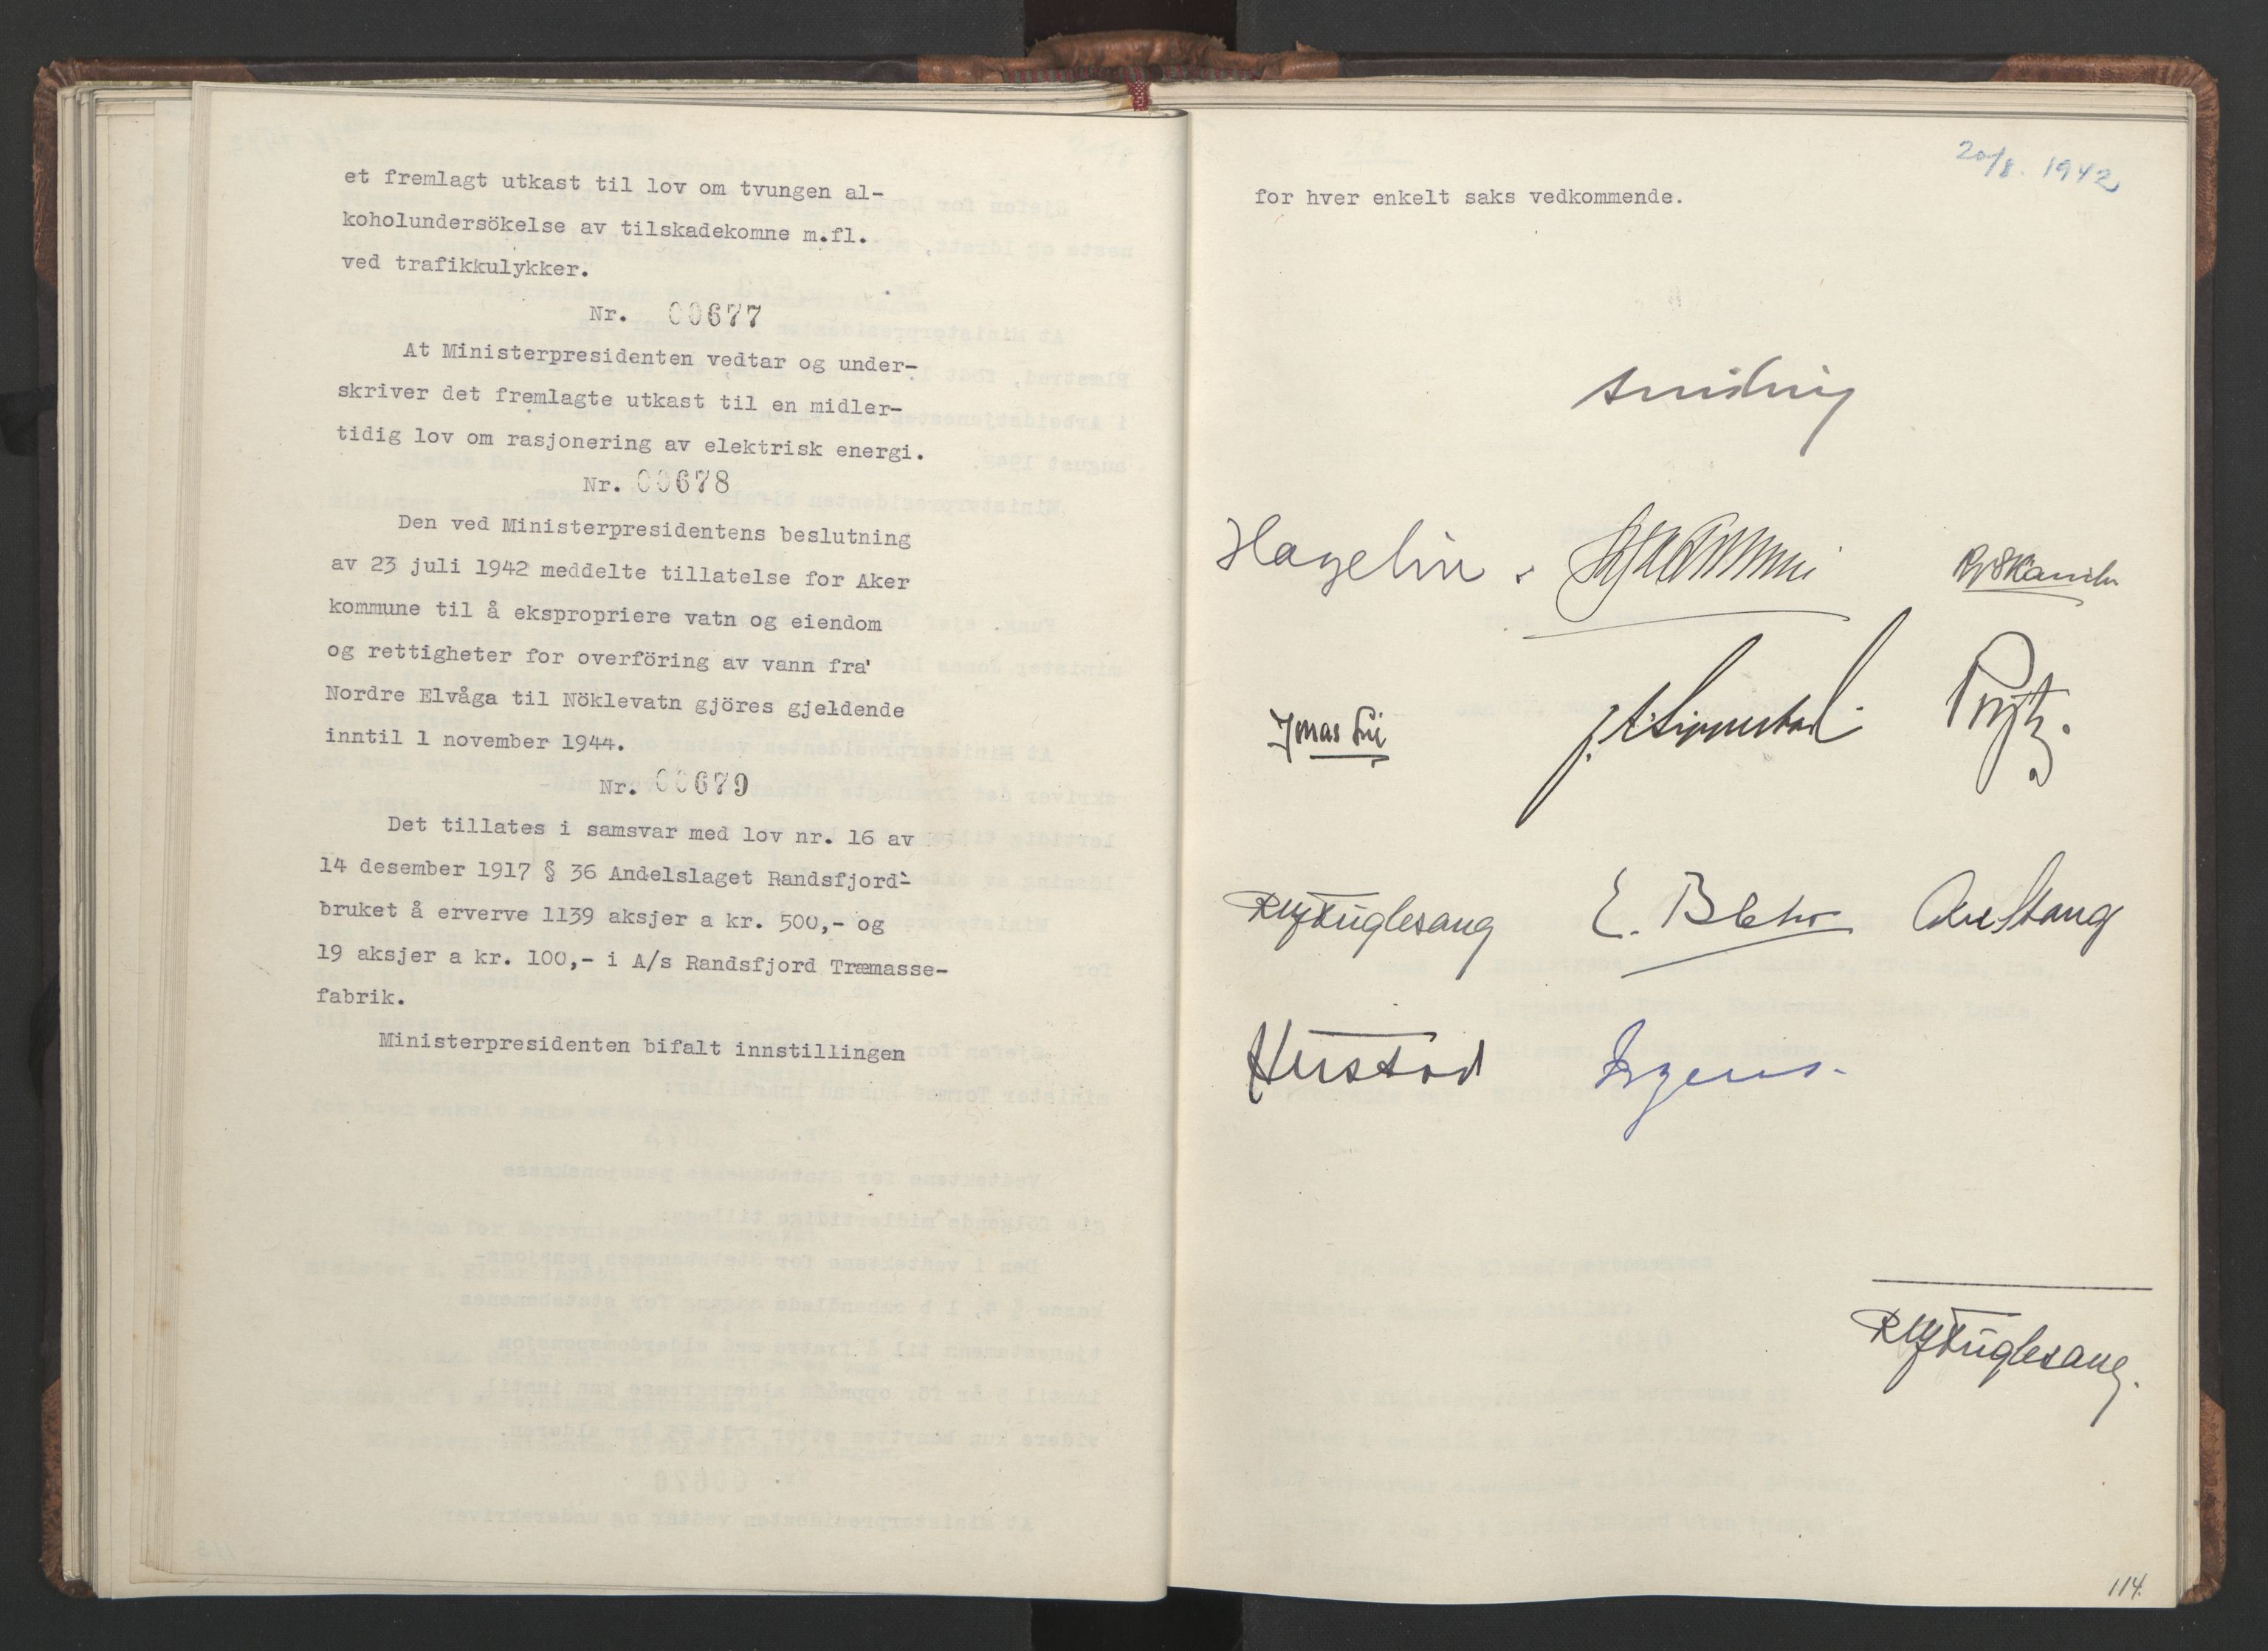 et fremlagt utkast til lov om tvungen al-
koholundersökelse av tilskadekomne m.fl.
ved trafikkulykker.
Nr. 00677
At Ministerpresidenten vedtar og under-
skriver det fremlagte utkast til en midler-
tidig lov om rasjonering av elektrisk energi.
Nr. 00678
Den ved Ministerpresidentens beslutning
av 23 juli 1942 meddelte tillatelse for Aker
kommune til å ekspropriere vatn og eiendom
og rettigheter for overföring av vann fra
Nordre Elvåga til Nöklevatn gjöres gjeldende
inntil 1 november 1944.
Nr. 00679
Det tillates i samsvar med lov nr. 16 av
14 desember 1917 § 36 Andelslaget Randsfjord-
bruket å erverve 1139 aksjer a kr. 500,- og
19 aksjer a kr. 100,- i A/s Randsfjord Træmasse-
fabrik.
Ministerpresidenten bifalt innstillingen
20/8. 1942
for hver enkelt saks vedkommende.
Hagelin. RJSkancke
Jonas Lie Prytz.
RJFuglesang E. Blehr AxelStang
Hustad Irgens.
RJFuglesang.
114.